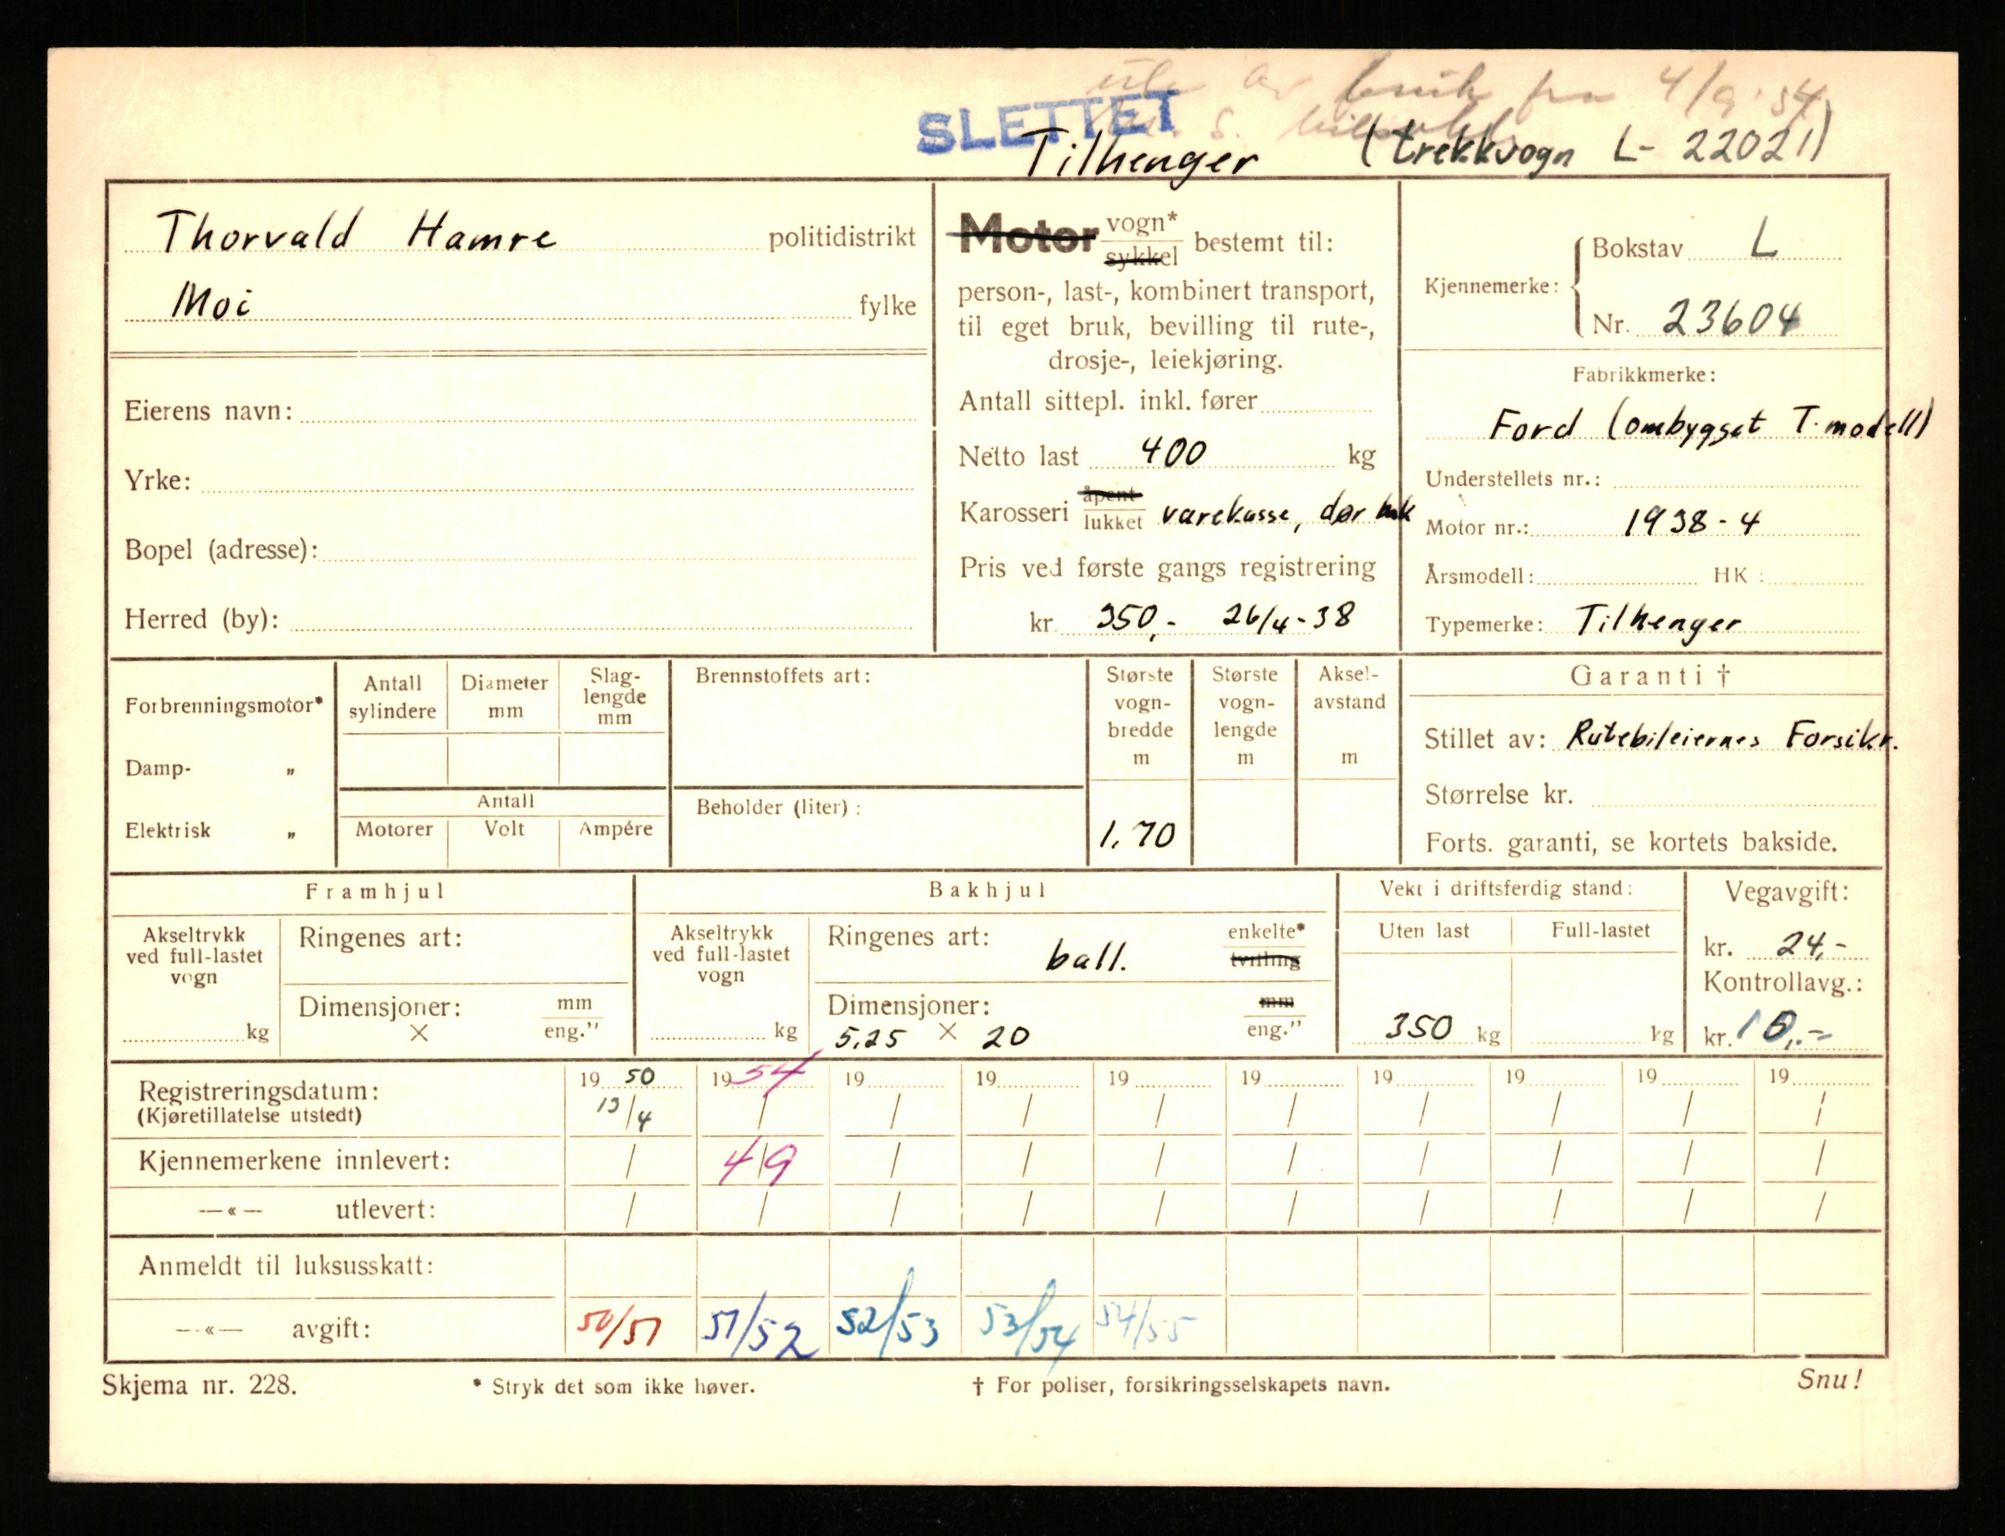 ute av bruk fra 4/9-54
SLETTET
Tilhenger (trekkvogn L- 22021)
Thorvald Hamre politidistrikt
Moi fylke
Eierens navn:
Yrke:
Bopel (adresse):
Herred (by):
Motor vogn* sykkel bestemt til:
person-, last-, kombinert transport,
til eget bruk, bevilling til rute-,
drosje-, leiekjøring.
Antall sittepl. inkl. fører
Netto last 400 kg
Karosseri åpent lukket varekasse, dør bak
Pris ved første gangs registrering
kr. 350,- 26/4-38
Kjennemerke: Bokstav L
Nr. 23604
Fabrikkmerke:
Ford (ombygget T-modell)
Understellets nr.:
Motor nr.: 1938-4
Årsmodell: HK:
Typemerke: Tilhenger
Forbrenningsmotor*
Damp- „
Elektrisk „
Antall sylindere
Diameter mm
Slag-lengde mm
Antall
Motorer Volt Ampére
Brennstoffets art:
Beholder (liter):
Største vogn-bredde m
1.70
Største vogn-lengde m
Aksel-avstand m
Garanti †
Stillet av: Rutebileiernes Forsikr.
Størrelse kr.
Forts. garanti, se kortets bakside.
Framhjul
Akseltrykk ved full-lastet vogn
kg
Ringenes art:
Dimensjoner: mm
× eng."
Bakhjul
Akseltrykk ved full-lastet vogn
kg
Ringenes art: ball. enkelte* tvilling
Dimensjoner: mm
5.25 × 20 eng."
Vekt i driftsferdig stand:
Uten last Full-lastet
350 kg kg
Vegavgift:
kr. 24,-
Kontrollavg.:
kr. 10,-
19 50 19 54 19 19 19 19 19 19 19 19
Registreringsdatum:
(Kjøretillatelse utstedt) 13/4 / / / / / / / / /
Kjennemerkene innlevert: / 4/9 / / / / / / / /
—«— utlevert: / / / / / / / / / /
Anmeldt til luksusskatt:
—«— avgift: 50/51 51/52 52/53 53/54 54/55
Skjema nr. 228. * Stryk det som ikke høver. † For poliser, forsikringsselskapets navn. Snu!